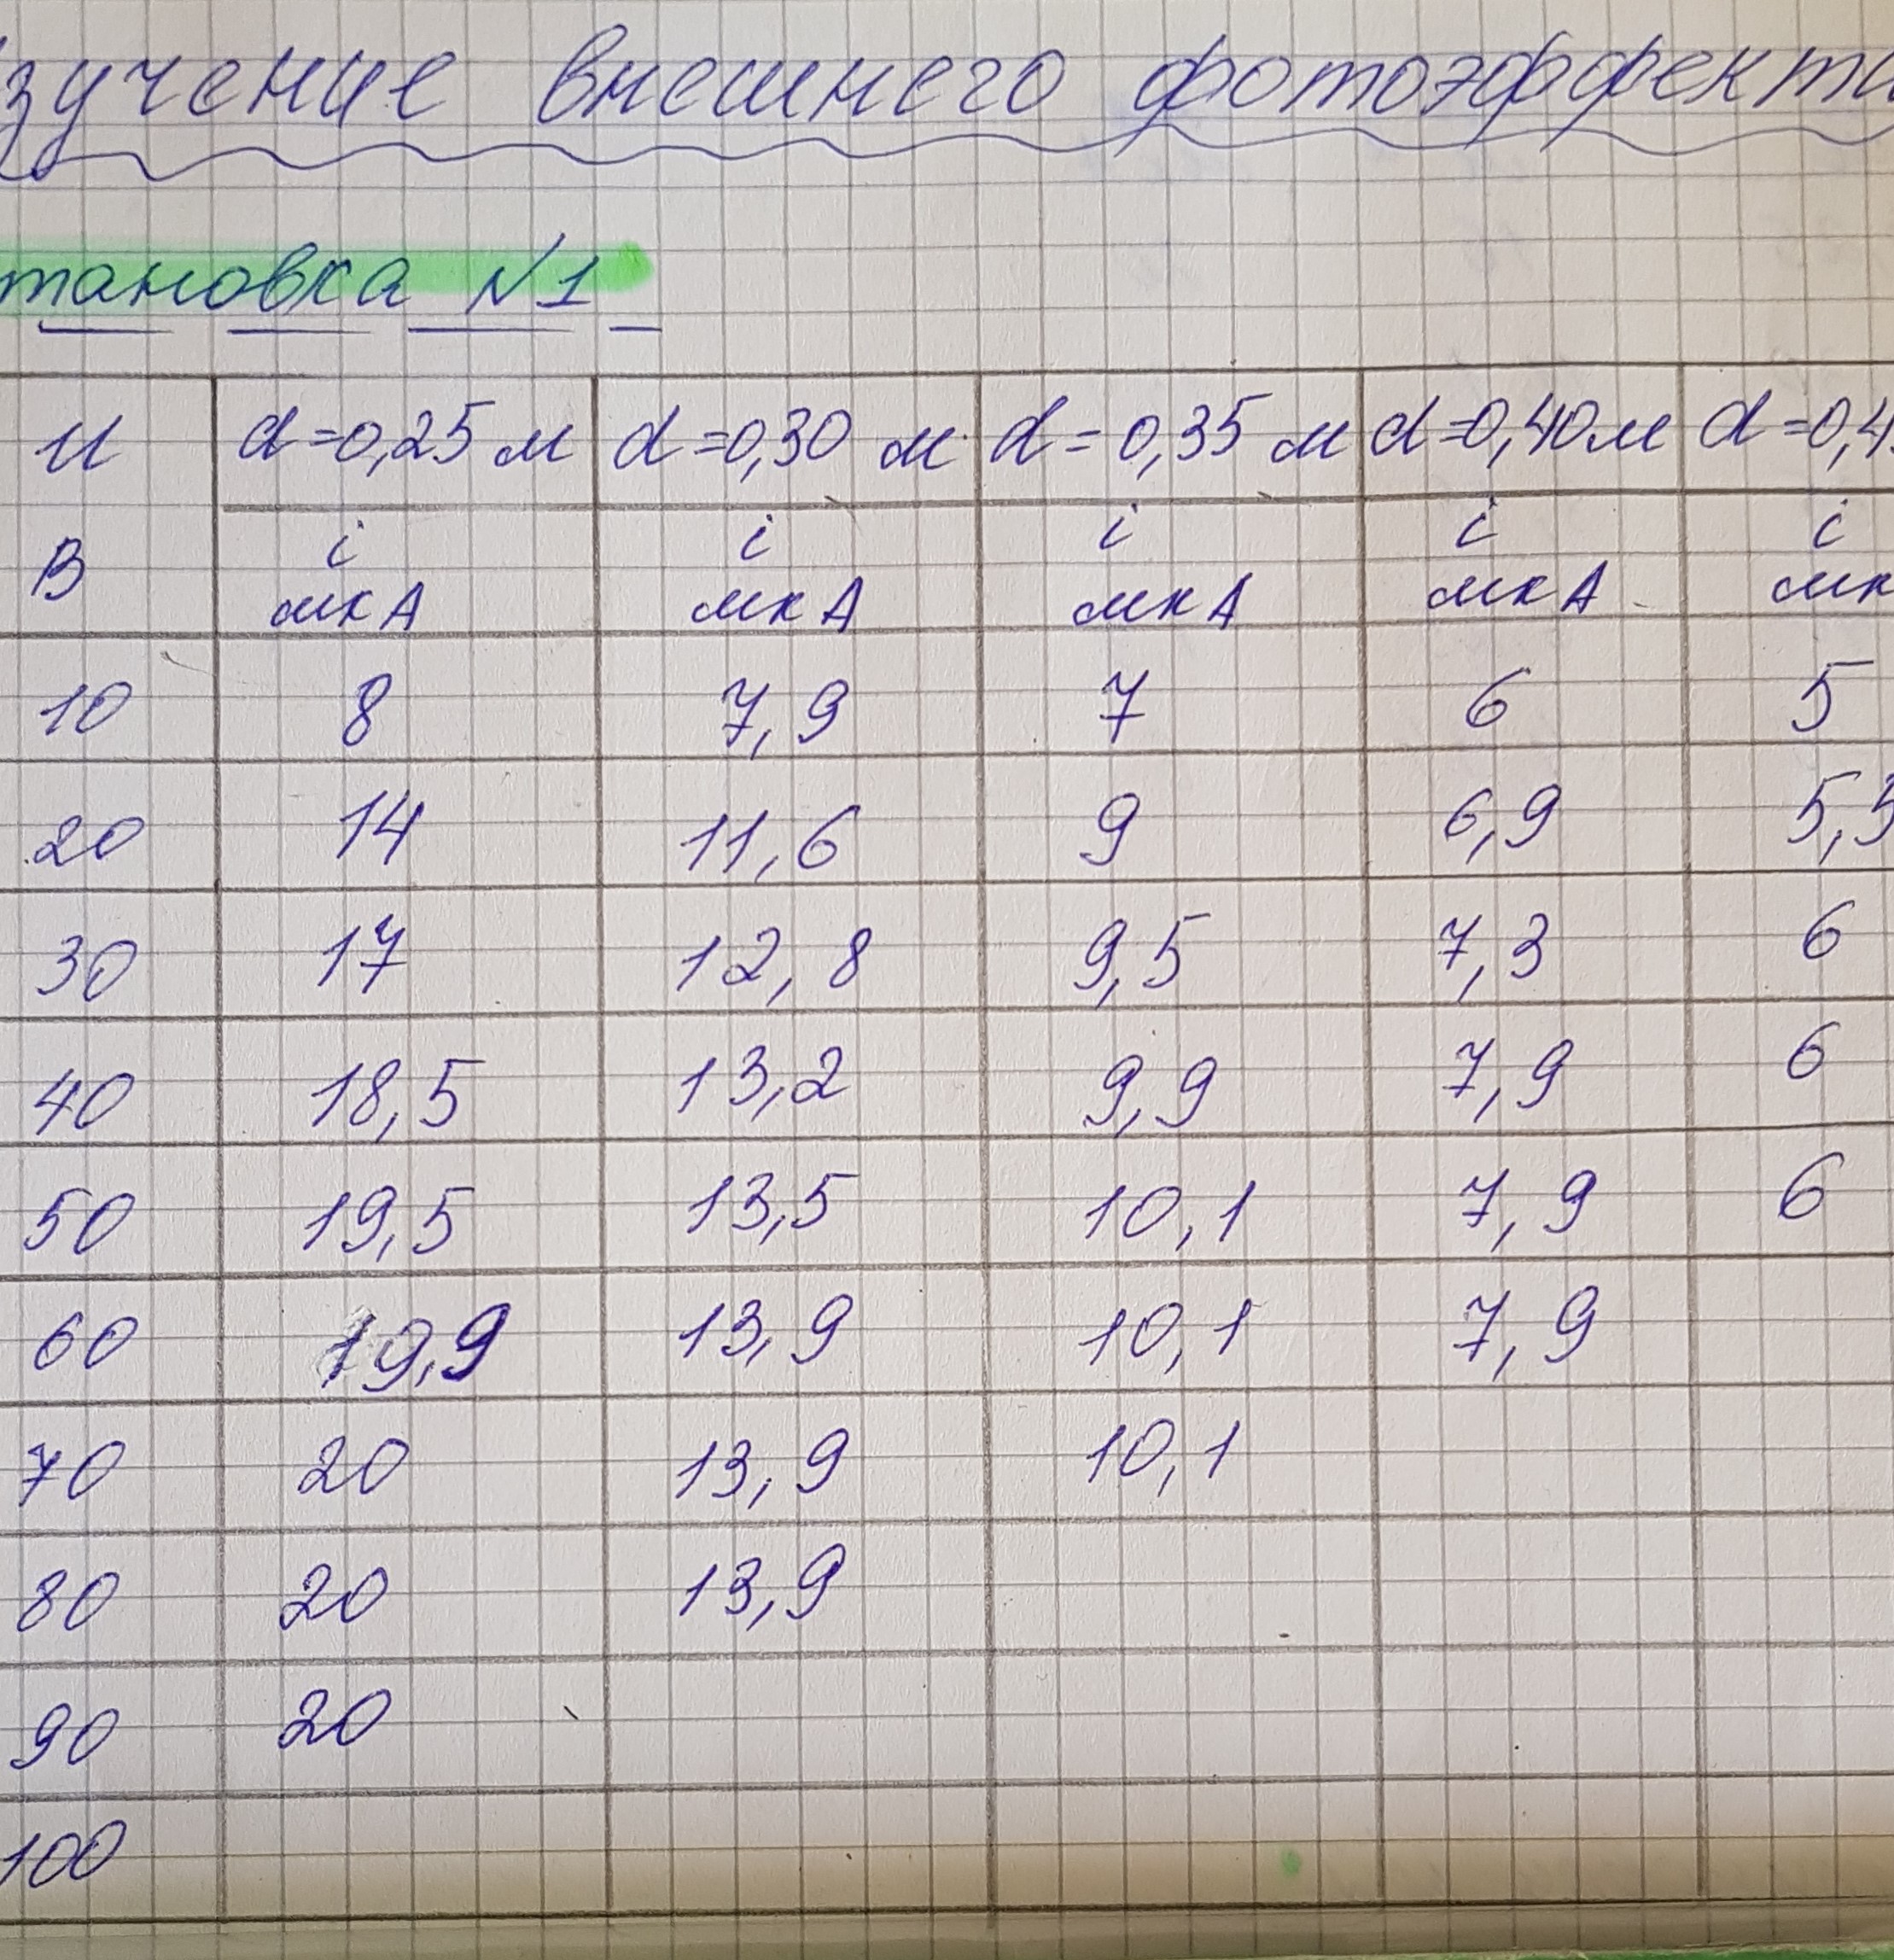 зучение внешнего фотоэффекта
тановка №1
U d=0,25 м d=0,30 м d=0,35 м d=0,40 м d=0,4
В i i i i i
мкА мкА мкА мкА мк
10 8 7,9 7 6 5
20 14 11,6 9 6,9 5,5
30 17 12,8 9,5 7,3 6
40 18,5 13,2 9,9 7,9 6
50 19,5 13,5 10,1 7,9 6
60 19,9 13,9 10,1 7,9
70 20 13,9 10,1
80 20 13,9
90 20
100